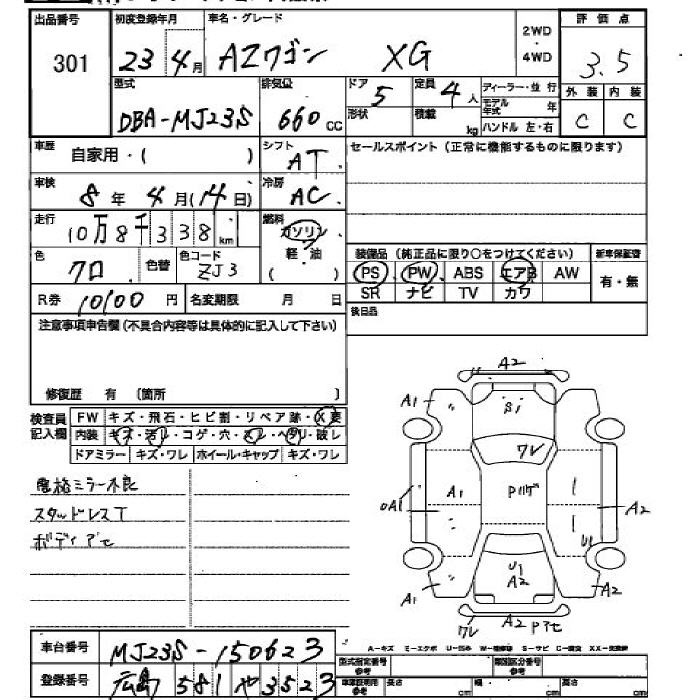 出品番号 301
初度登録年月 23 4月
車名・グレード AZワゴン XG
2WD・4WD
評価点 3.5
型式 DBA-MJ23S
排気量 660 CC
ドア 5
形状
定員 4人
積載 kg
ディーラー・並行
モデル年式 年
ハンドル 左・右
外装 C
内装 C
車歴 自家用・( )
シフト AT
セールスポイント(正常に機能するものに限ります)
車検 8年 4月(14日)
冷房 AC
走行 10万8千338 km
燃料 ガソリン 軽・油 ( )
色 クロ
色替
色コード ZJ3
装備品(純正品に限り○をつけてください)
新車保証書 有・無
PS PW ABS エアB AW
SR ナビ TV カワ
R券 10100 円
名変期限 月 日
後日品
注意事項申告欄(不具合内容等は具体的に記入して下さい)
修復歴 有 〔箇所 〕
検査員記入欄
FW キズ・飛石・ヒビ割・リペア跡・X要
内装 キズ・汚レ・コゲ・穴・スレ・ヘタリ・破レ
ドアミラー キズ・ワレ ホイール・キャップ キズ・ワレ
スタッドレスT
A2
A1
S1
ワレ
A1
A1
A2
U1
U1
A2
A1
A2
ワレ
A2
車台番号 MJ23S-150623
登録番号 広島 581 や 3523
A-キズ
型式指定番号 参考
類別区分番号 参考
長さ cm
幅 cm
高さ cm